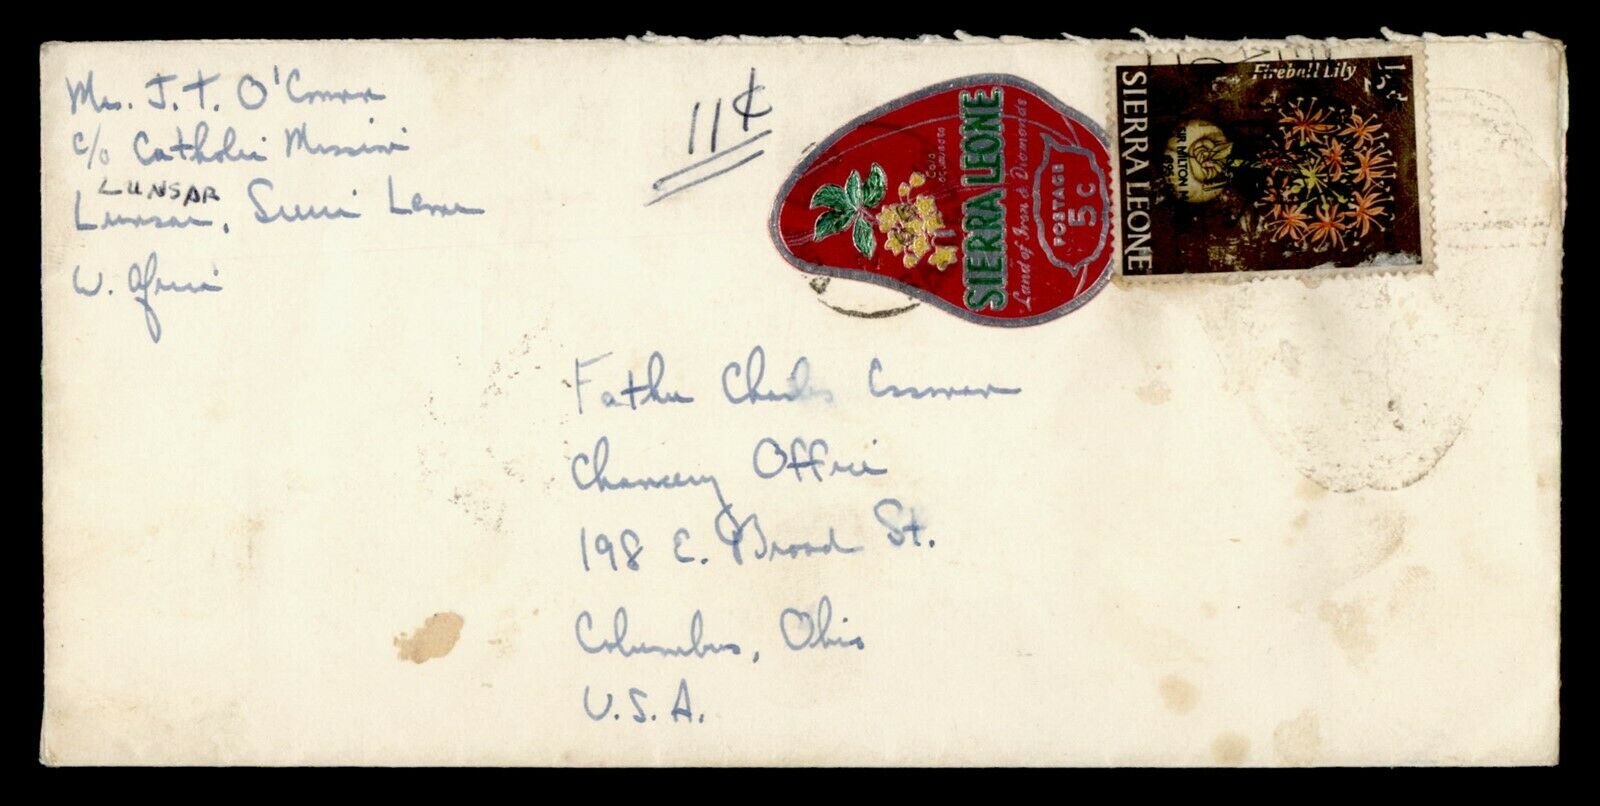 Mrs. J. T. O'Connor
c/o Catholic Mission
LUNSAR
Lunsar, Sierra Leone
W. Africa
11¢
Cola acuminata
SIERRA LEONE
Land of Iron & Diamonds
POSTAGE
5c
Fireball Lily
SIERRA LEONE
SIR MILTON
1965
Father Charles
Chancery Office
198 E. Broad St.
Columbus, Ohio
U.S.A.